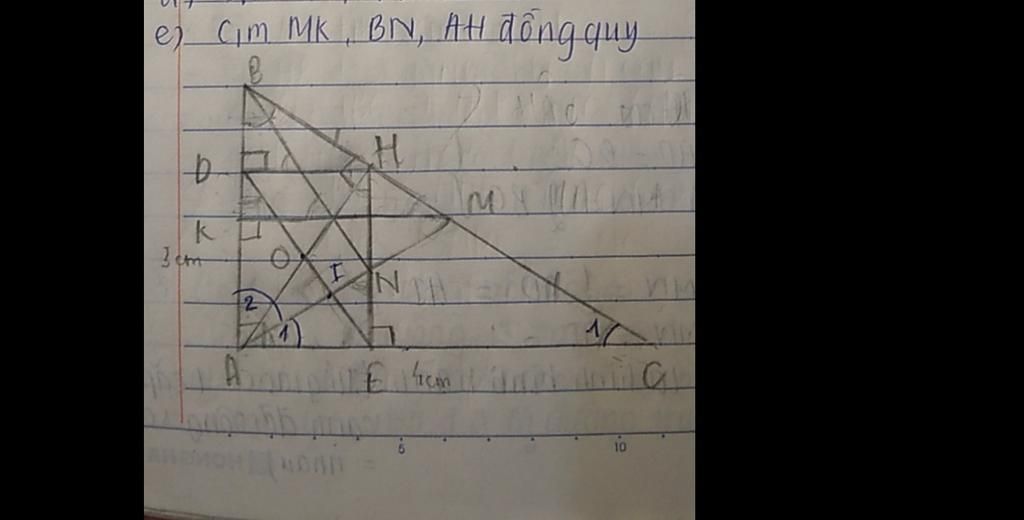 e) C,m MK, BN, AH đồng quy
B
D
H
M
K
3cm
O
I
N
2
1
1
A
E
4cm
C
5
10